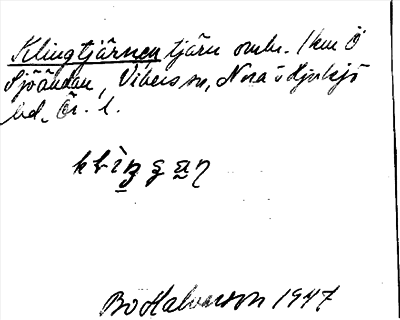 Klingtjärnen tjärn omkr. 1 km Ö
Sjöändan, Vikers sn, Nora o Hjulsjö
bd. Ör. l.
Bo Halvarson 1947